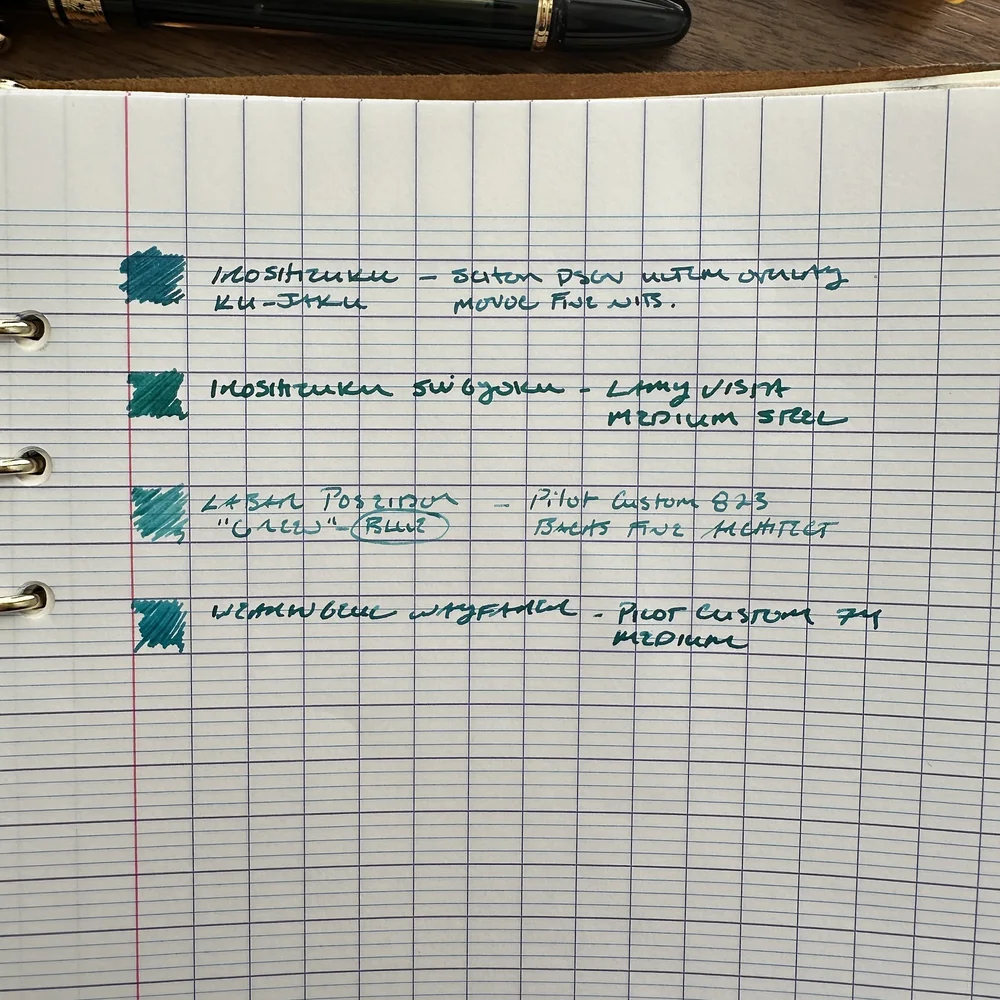 IROSHIZUKU - SCHON DSGN ULTEM OVERLAY
KU-JAKU MONOC FINE NIB.
IROSHIZUKU SUIGYOKU - LAMY VISTA
MEDIUM STEEL
LABAN POSEIDON - PILOT CUSTOM 823
"GREEN" - BLUE BACHS FINE ARCHITECT
WEARINGEUL WAYFARER - PILOT CUSTOM 74
MEDIUM